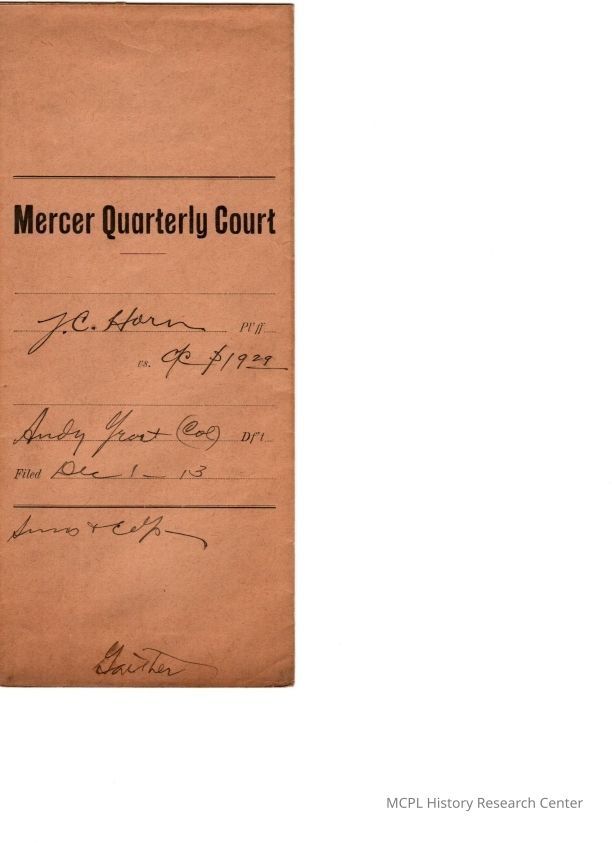 Mercer Quarterly Court
J.C. Horn Pl'ff
vs. O/C $1929
Andy (Col) Df't
Filed Dec 1 - 13
Gaither
MCPL History Research Center